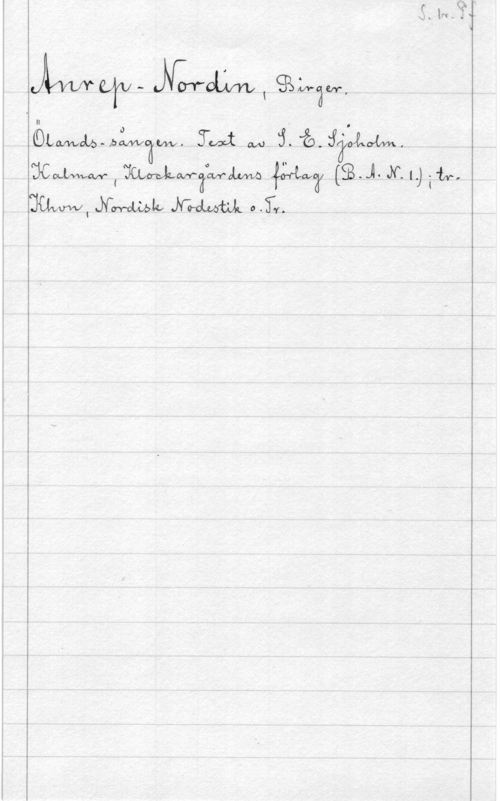 S. tr. Pf
Anrep-Nordin, Birger.
Ölands-sången. Text av J. E. Sjöholm.
Kalmar, Klockargårdens förlag (B. A. N. 1.); tr.
Khvn, Nordisk Nodestik o. Tr.